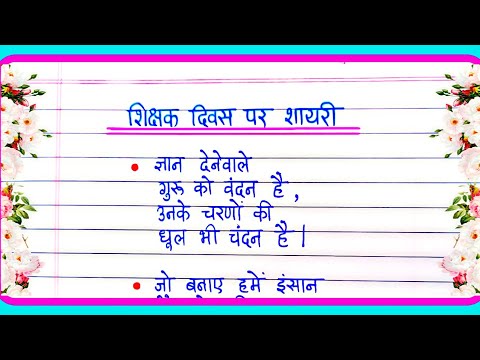 शिक्षक दिवस पर शायरी
• ज्ञान देनेवाले
गुरू को वंदन है,
उनके चरणों की
धूल भी चंदन है।
• जो बनाए हमें इंसान